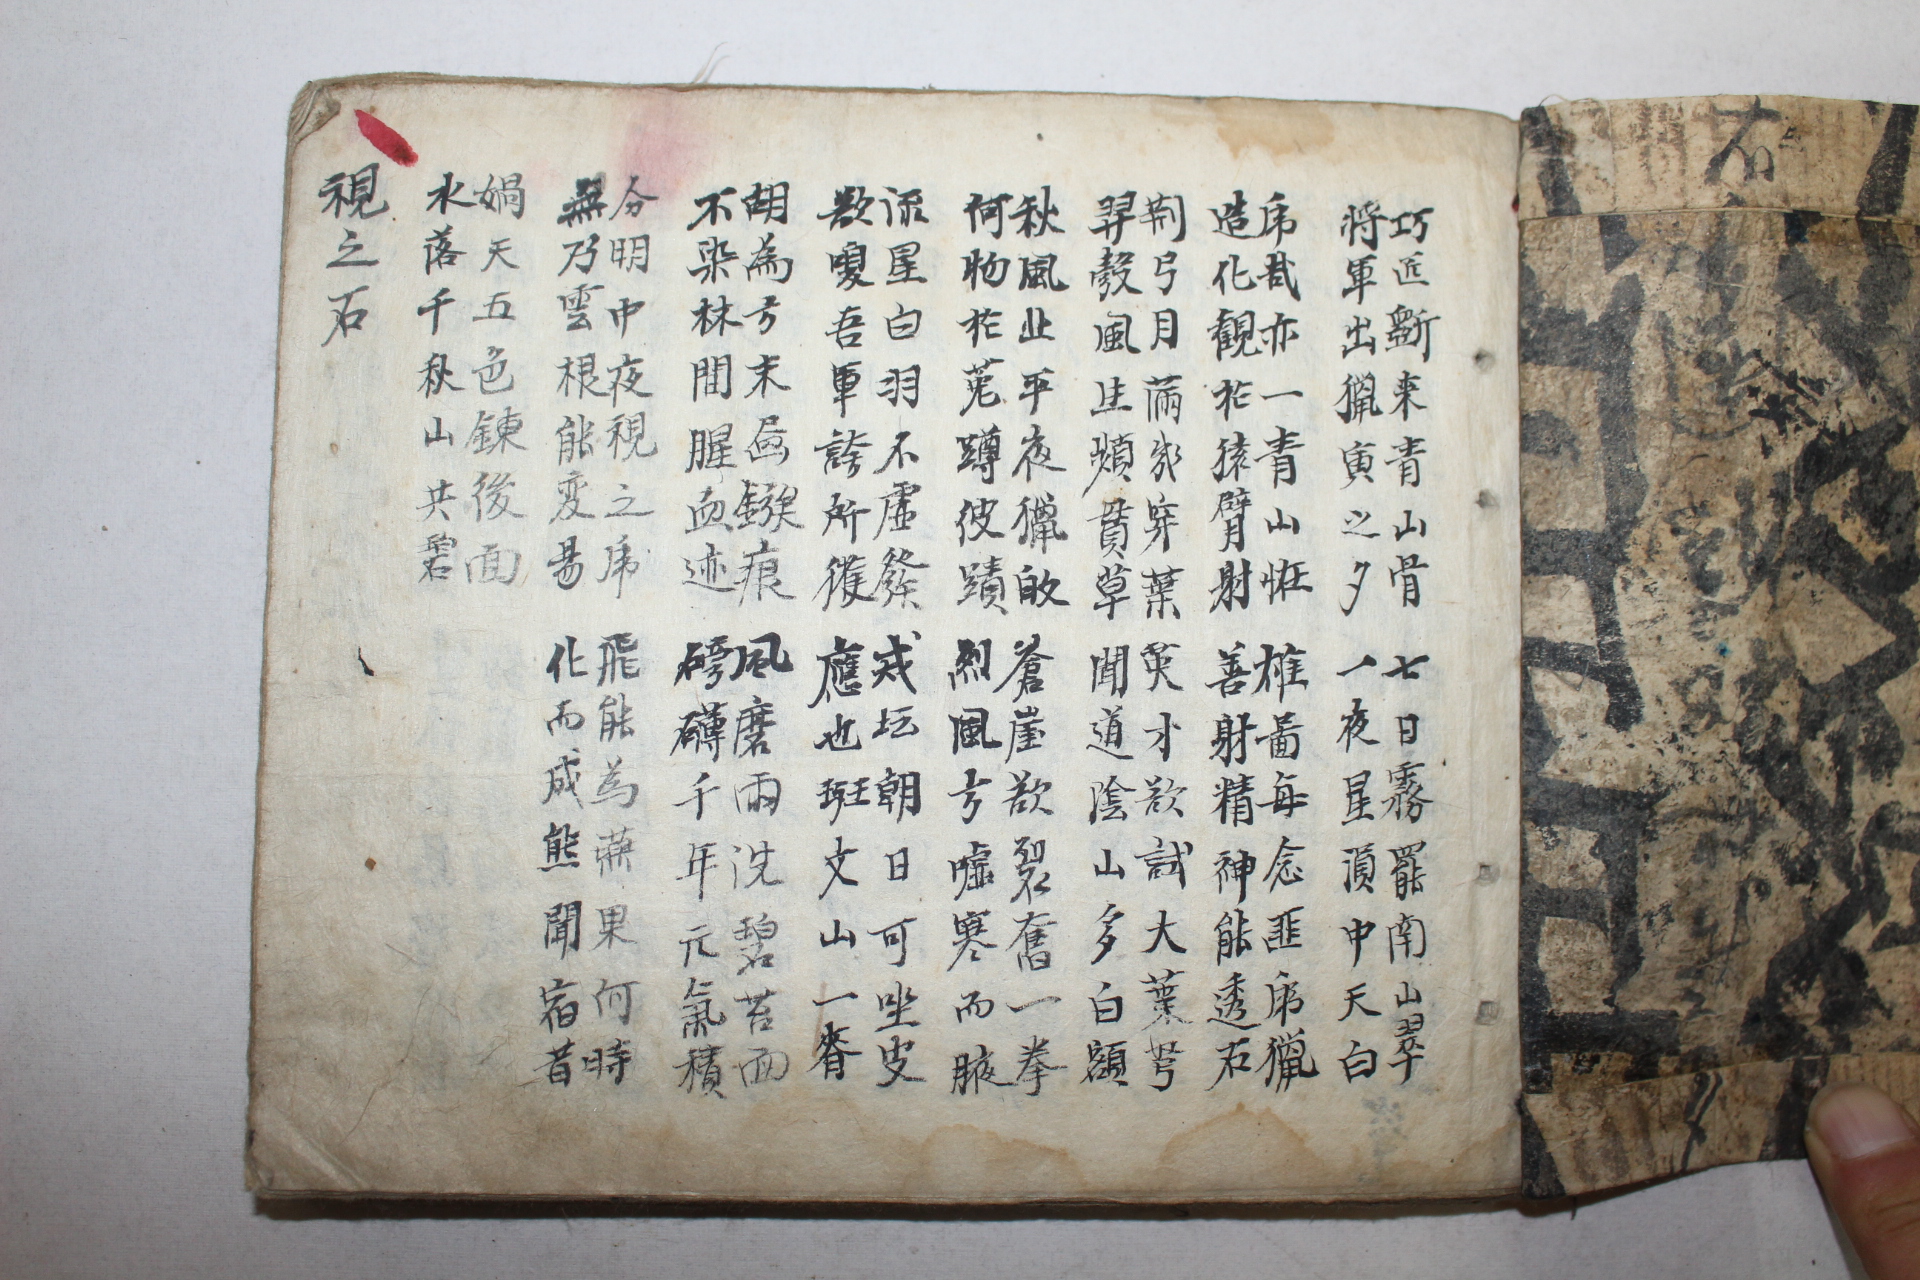 巧匠斲来青山骨 七日霧罷南山翠
将軍出獵寅之夕 一夜星隕中天白
虎哉亦一青山恠 雄啚每念匪虎獵
造化観於猿臂射 善射精神能透石
荊弓月滿幾穿葉 英才欲試大葉弩
羿彀風生頻貫草 聞道陰山多白額
秋風北平夜獵的 蒼崖欲裂奮一拳
何物於菟蹲彼蹟 烈風兮嘘寒而腋
流星白羽不虛發 戎坛朝日可坐皮
欻嗄吾軍誇所獲 應也斑文山一脊
胡為兮末鏃痕 風磨雨洗碧苔面
不染林間腥血迹 磅礴千年元氣積
分明中夜視之虎 飛能為燕果何時
無乃雲根能変易 化而成熊聞宿昔
媧天五色鍊後面
水落千秋山共碧
視之石